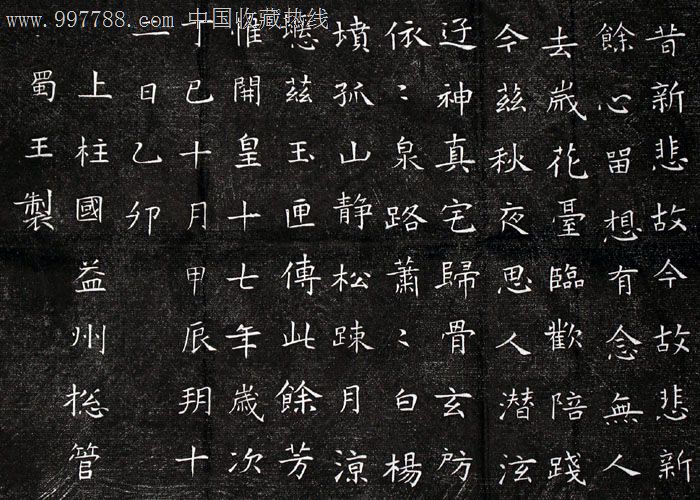 www.997788.com 中国收藏热线
昔新悲故今故悲新
餘心留想有念無人
去歲花臺臨歡陪踐
今茲秋夜思人潜泫
迂神真宅歸骨玄房
依〻泉路蕭〻白楊
墳孤山静松踈月涼
瘞茲玉匣傳此餘芳
惟開皇十七年歲次
丁巳十月甲辰朔十
一日乙卯
上柱國益州摠管
蜀王製